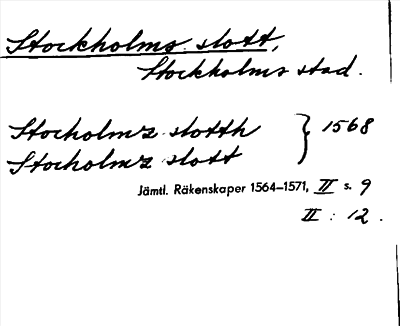 Stockholms slott,
Stockholms stad.
Stocholmz slotth } 1568
Stocholmz slott
Jämtl. Räkenskaper 1564–1571, II s. 9
II : 12.